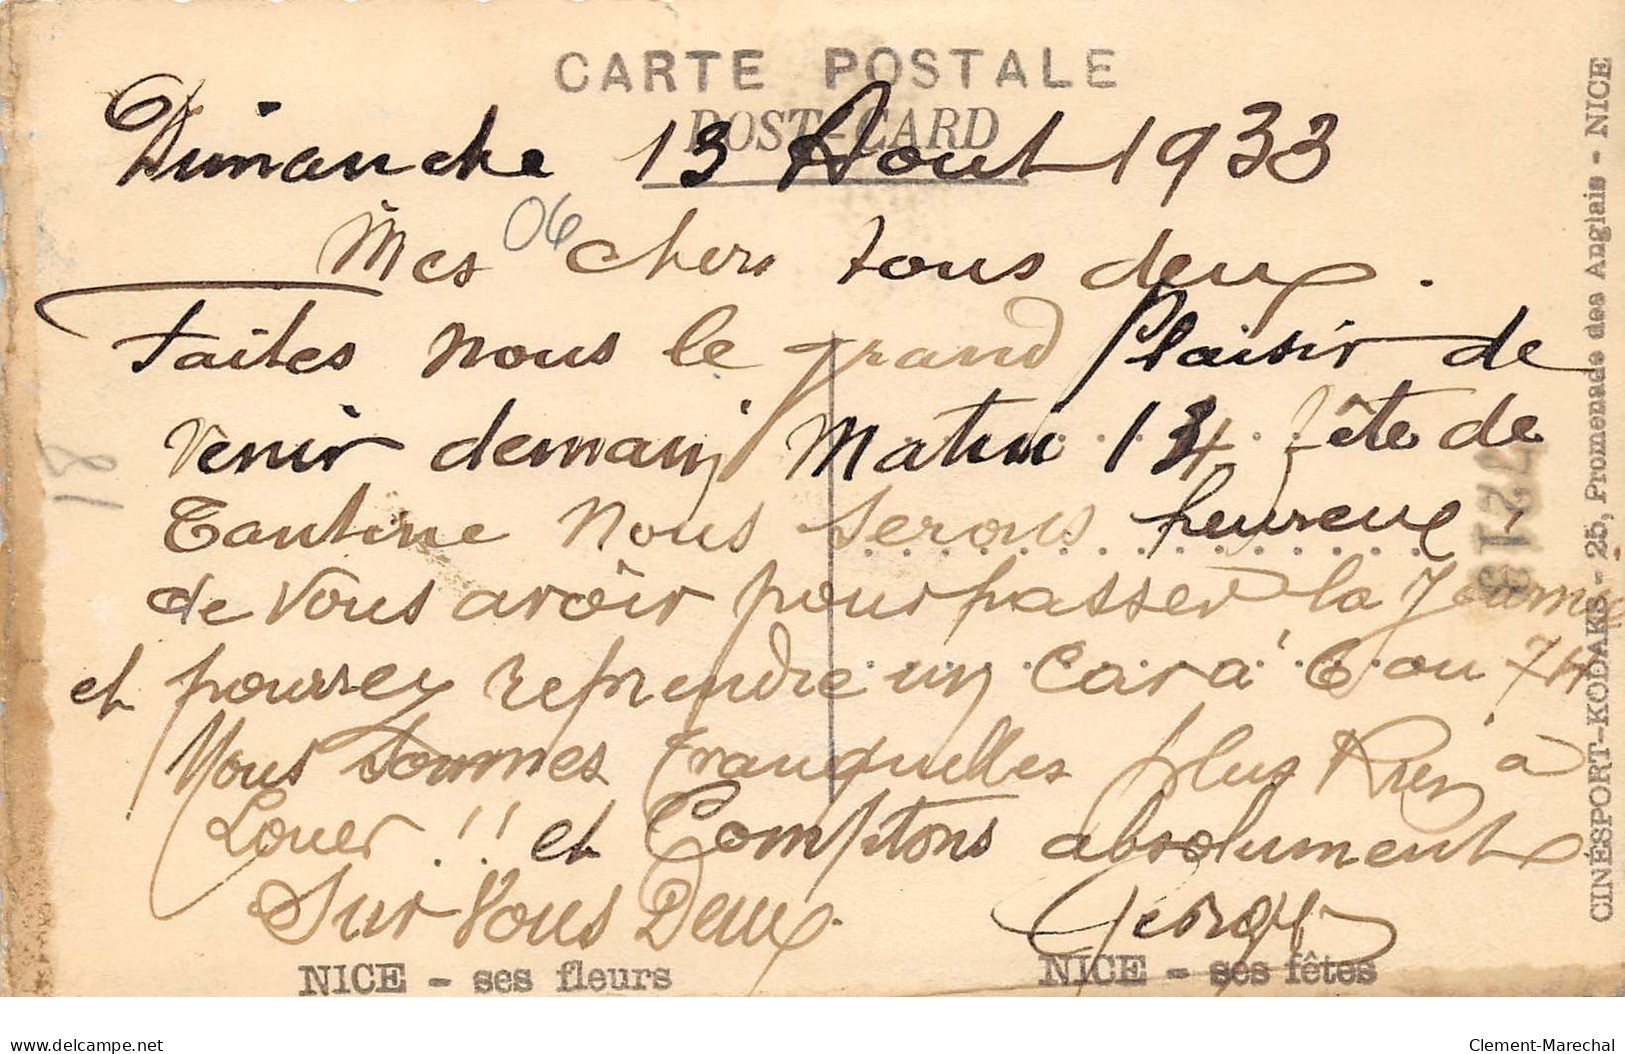 CARTE POSTALE
POST-CARD
Dimanche 13 Aout 1933
06
Mes chers tous deux.
Faites nous le grand Plaisir de
venir demain Matin 14 fête de
Tantine nous serons heureux
de vous avoir pour passer la Journée
et pourrez reprendre un car à 6 ou 7H
Nous sommes tranquilles plus Rien à
Louer !! et Comptons absolument
Sur Vous Deux.
18
NICE - ses fleurs
NICE - ses fêtes
CINÉSPORT-KODAKS - 25, Promenade des Anglais - NICE
delcampe.net
Clement-Marechal